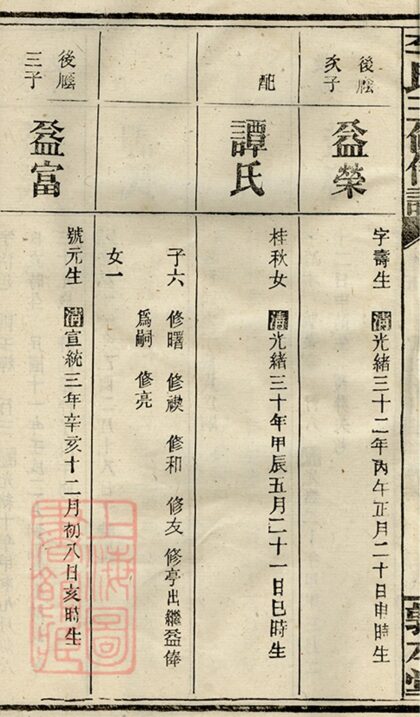 後隱
次子
益榮
字壽生 清光緒三十二年丙午正月二十日申時生
配
譚氏
桂秋女 清光緒三十年甲辰五月二十一日巳時生
子六 修曙 修禊 修和 修友 修亭出繼益俸
爲嗣 修亮
女一
後隱
三子
益富
號元生 清宣統三年辛亥十二月初八日亥時生
上海圖